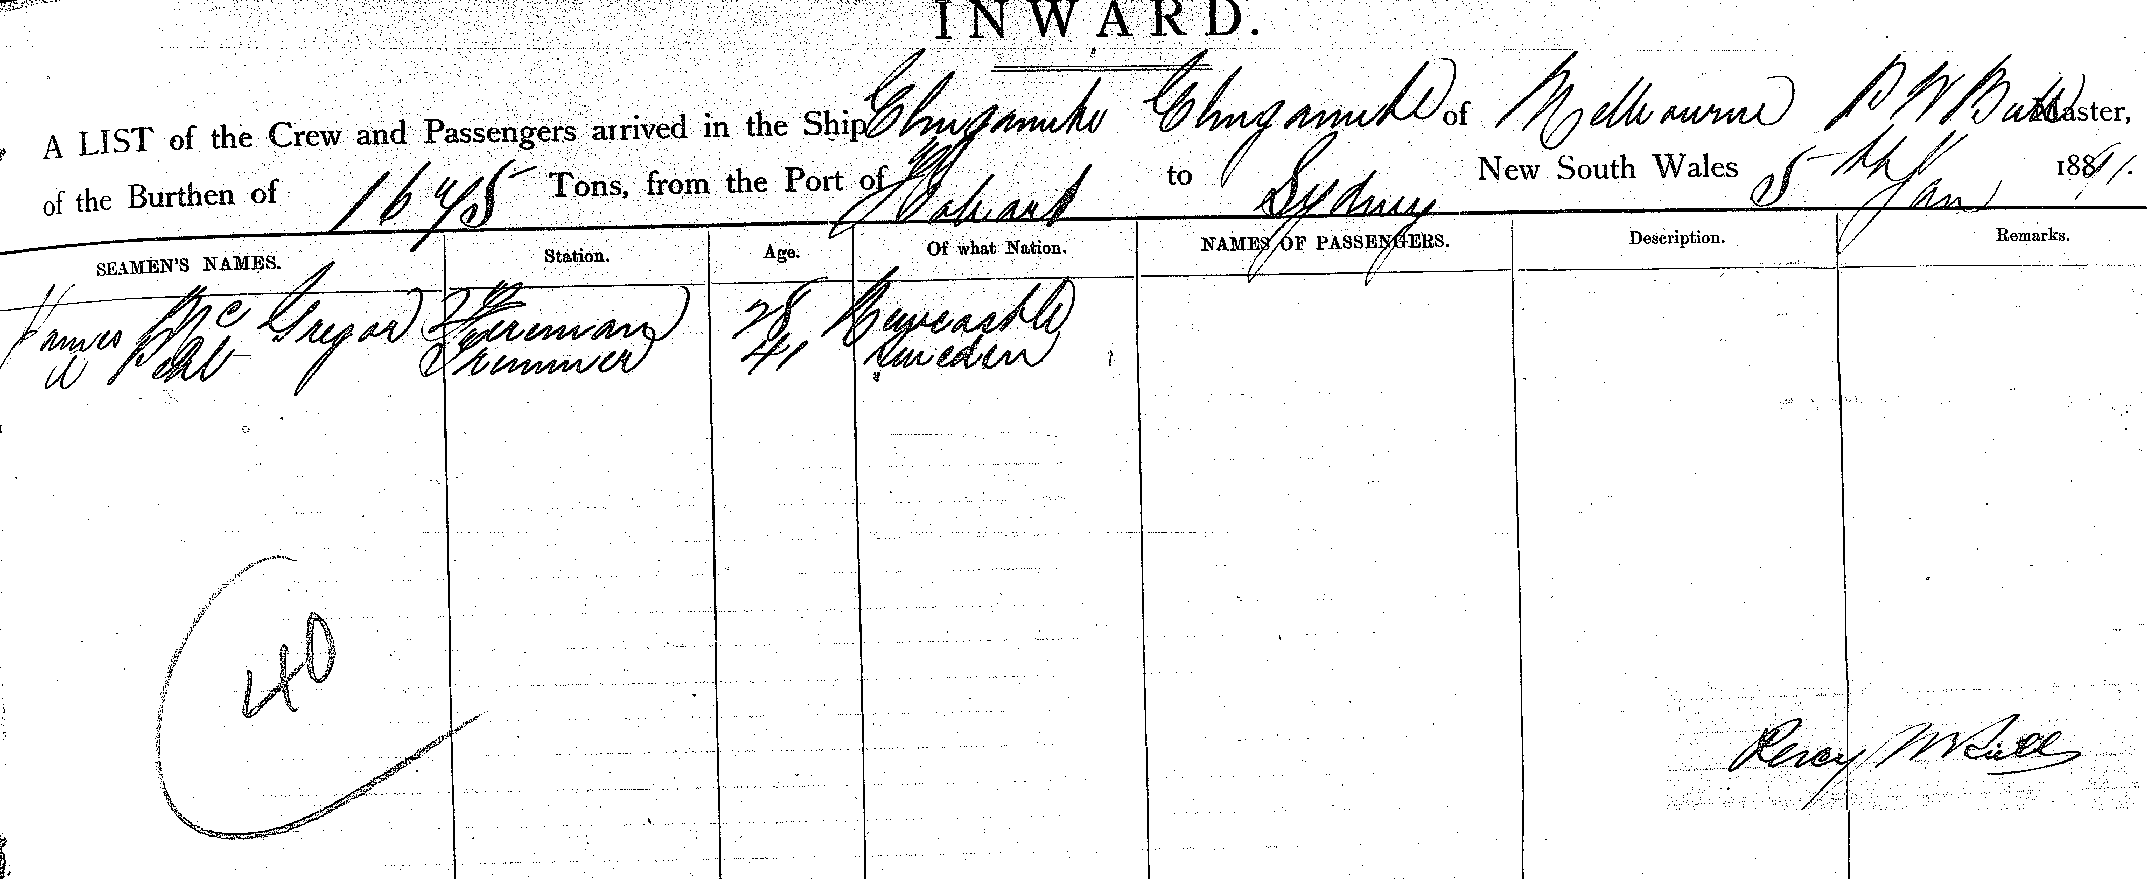 INWARD.
A LIST of the Crew and Passengers arrived in the Ship Elingamite Elingamite of Melbourne P W Bull Master,
of the Burthen of 1675 Tons, from the Port of Hobart to Sydney New South Wales 5th Jan 1891.
SEAMEN'S NAMES. Station. Age. Of what Nation. NAMES OF PASSENGERS. Description. Remarks.
James McGregor Fireman 28 Newcastle
W Trimmer 41 Sweden
40
Percy W Bull